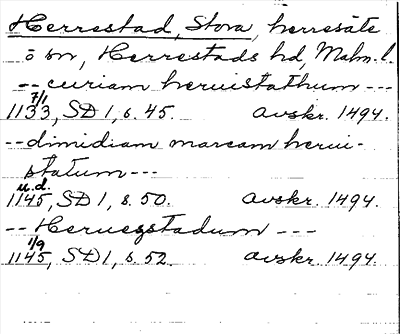 Herrestad, Stora, herresäte
ö sn, Herrestads hd, Malm. l.
-- curiam heruistathum ---
7/1
1133, SD 1, s. 45. avskr. 1494.
-- dimidiam marcam herui-
statum ---
u.d.
1145, SD 1, s. 50. avskr. 1494.
-- Herueystadum ---
1/9
1145, SD 1, s. 52. avskr. 1494.